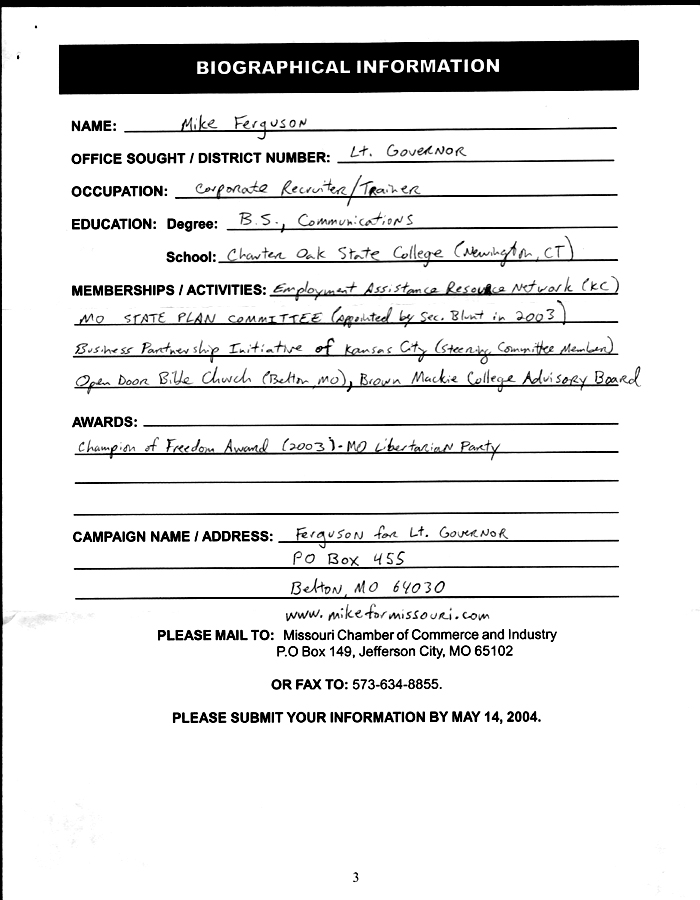 BIOGRAPHICAL INFORMATION
NAME: Mike Ferguson
OFFICE SOUGHT / DISTRICT NUMBER: Lt. Governor
OCCUPATION: Corporate Recruiter/Trainer
EDUCATION: Degree: B.S., Communications
School: Charter Oak State College (Newington, CT)
MEMBERSHIPS / ACTIVITIES: Employment Assistance Resource Network (KC)
MO STATE PLAN COMMITTEE (Appointed by Sec. Blunt in 2003)
Business Partnership Initiative of Kansas City (Steering Committee Member)
Open Door Bible Church (Belton, MO), Brown Mackie College Advisory Board
AWARDS:
Champion of Freedom Award (2003) - MO Libertarian Party
CAMPAIGN NAME / ADDRESS: Ferguson for Lt. Governor
PO Box 455
Belton, MO 64030
www.mikeformissouri.com
PLEASE MAIL TO: Missouri Chamber of Commerce and Industry
P.O Box 149, Jefferson City, MO 65102
OR FAX TO: 573-634-8855.
PLEASE SUBMIT YOUR INFORMATION BY MAY 14, 2004.
3